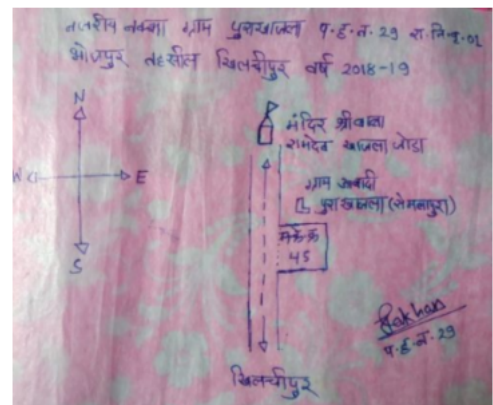 नजरीय नक्शा ग्राम पुराखाजला प.ह.न. 29 रा.नि.वृ. 01
भोजपुर तहसील खिलचीपुर वर्ष 2018-19
N
W
E
S
मंदिर श्रीबाबा
रामदेव खाजला जोडा
ग्राम आबादी
पुराखाजला (सेमलापुरा)
45
खिलचीपुर
प.ह.न. 29